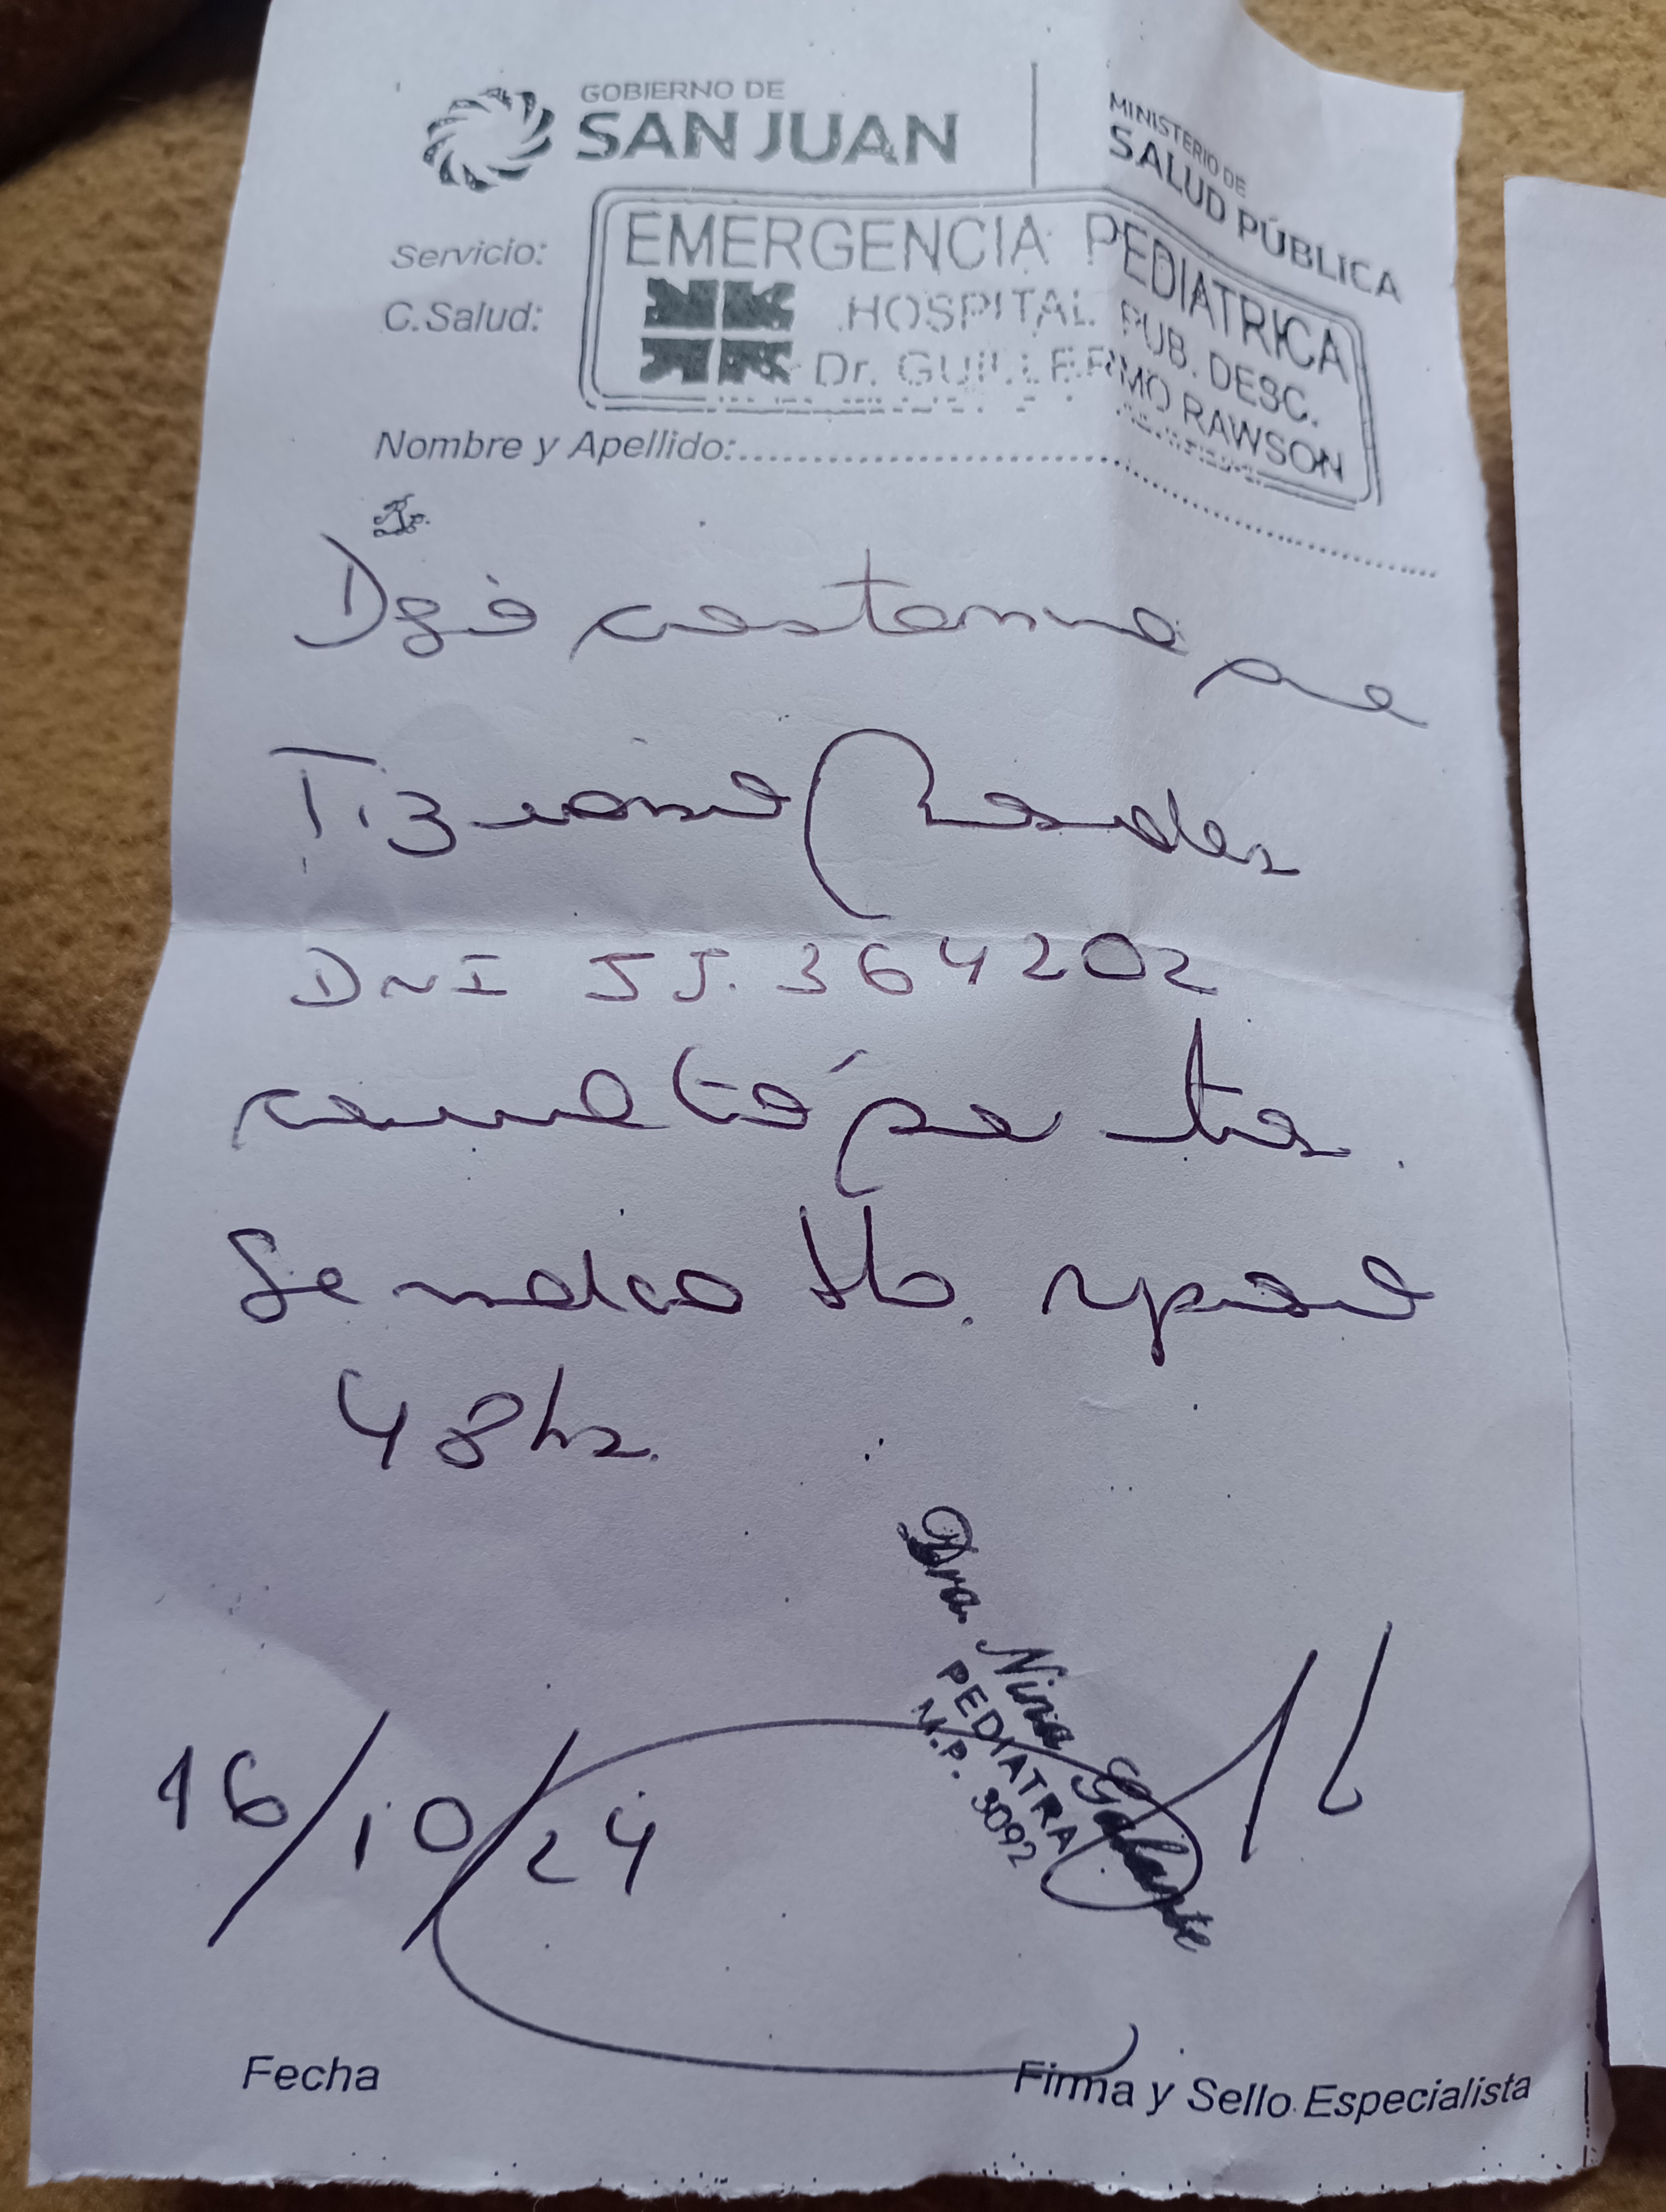 GOBIERNO DE
SAN JUAN
MINISTERIO DE
SALUD PÚBLICA
Servicio:
C.Salud:
EMERGENCIA PEDIATRICA
HOSPITAL PUB. DESC.
Dr. GUILLERMO RAWSON
Nombre y Apellido:
Dejo constancia que
Tiziana
DNI 55.364202
consultó por tos.
Se indica tto. reposo
48hs.
Dra. Nina Galante
PEDIATRA
M.P. 3092
16/10/24
Fecha
Firma y Sello Especialista